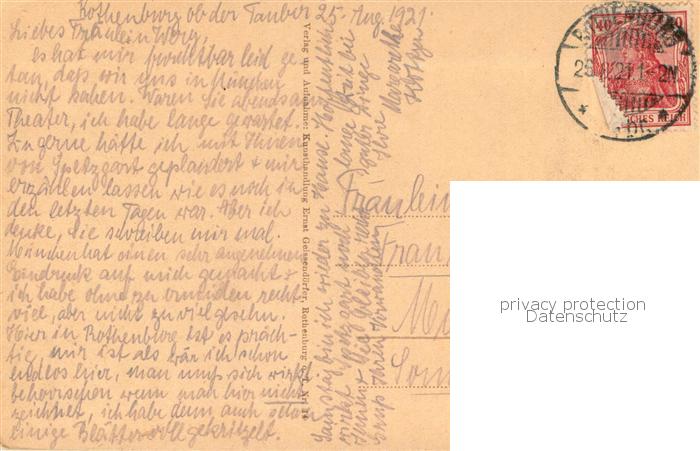 Rothenburg ob der Tauber 25. Aug. 1921.
Liebes Fräulein Werg,
Es hat mir furchtbar leid ge-
tan, daß wir uns in München
nicht sahen. Waren Sie abends am
Theater, ich habe lange gewartet.
Zu gerne hätte ich mit Ihnen
von Spetzgart geplaudert + mir
erzählen lassen wie es noch in
den letzten Tagen war. Aber ich
denke, Sie schreiben mir mal.
München hat einen sehr angenehmen
Eindruck auf mich gemacht +
ich habe ohne zu ermüden recht
viel, aber nicht zu viel gesehn.
Hier in Rothenburg ist es präch-
tig, mir ist als wär ich schon
endlos hier, man muß sich wirkl.
beherrschen wenn man hier nicht
zeichnet, ich habe denn auch schon
einige Blätter voll gekritzelt.
Samstag bin ich wieder zu Hause. Hoffentlich
wirkt Spetzgart noch lange Zeit bei
Ihnen
Grüß Ihren
Ihre
Margarethe
Verlag und Aufnahme: Kunsthandlung Ernst Geissendörfer, Rothenburg o. T. Nr.
Fräulein
Fran
Me
Son
ROTHENBURG
25. 21. 1-2N
40
CHES REICH
privacy protection
Datenschutz